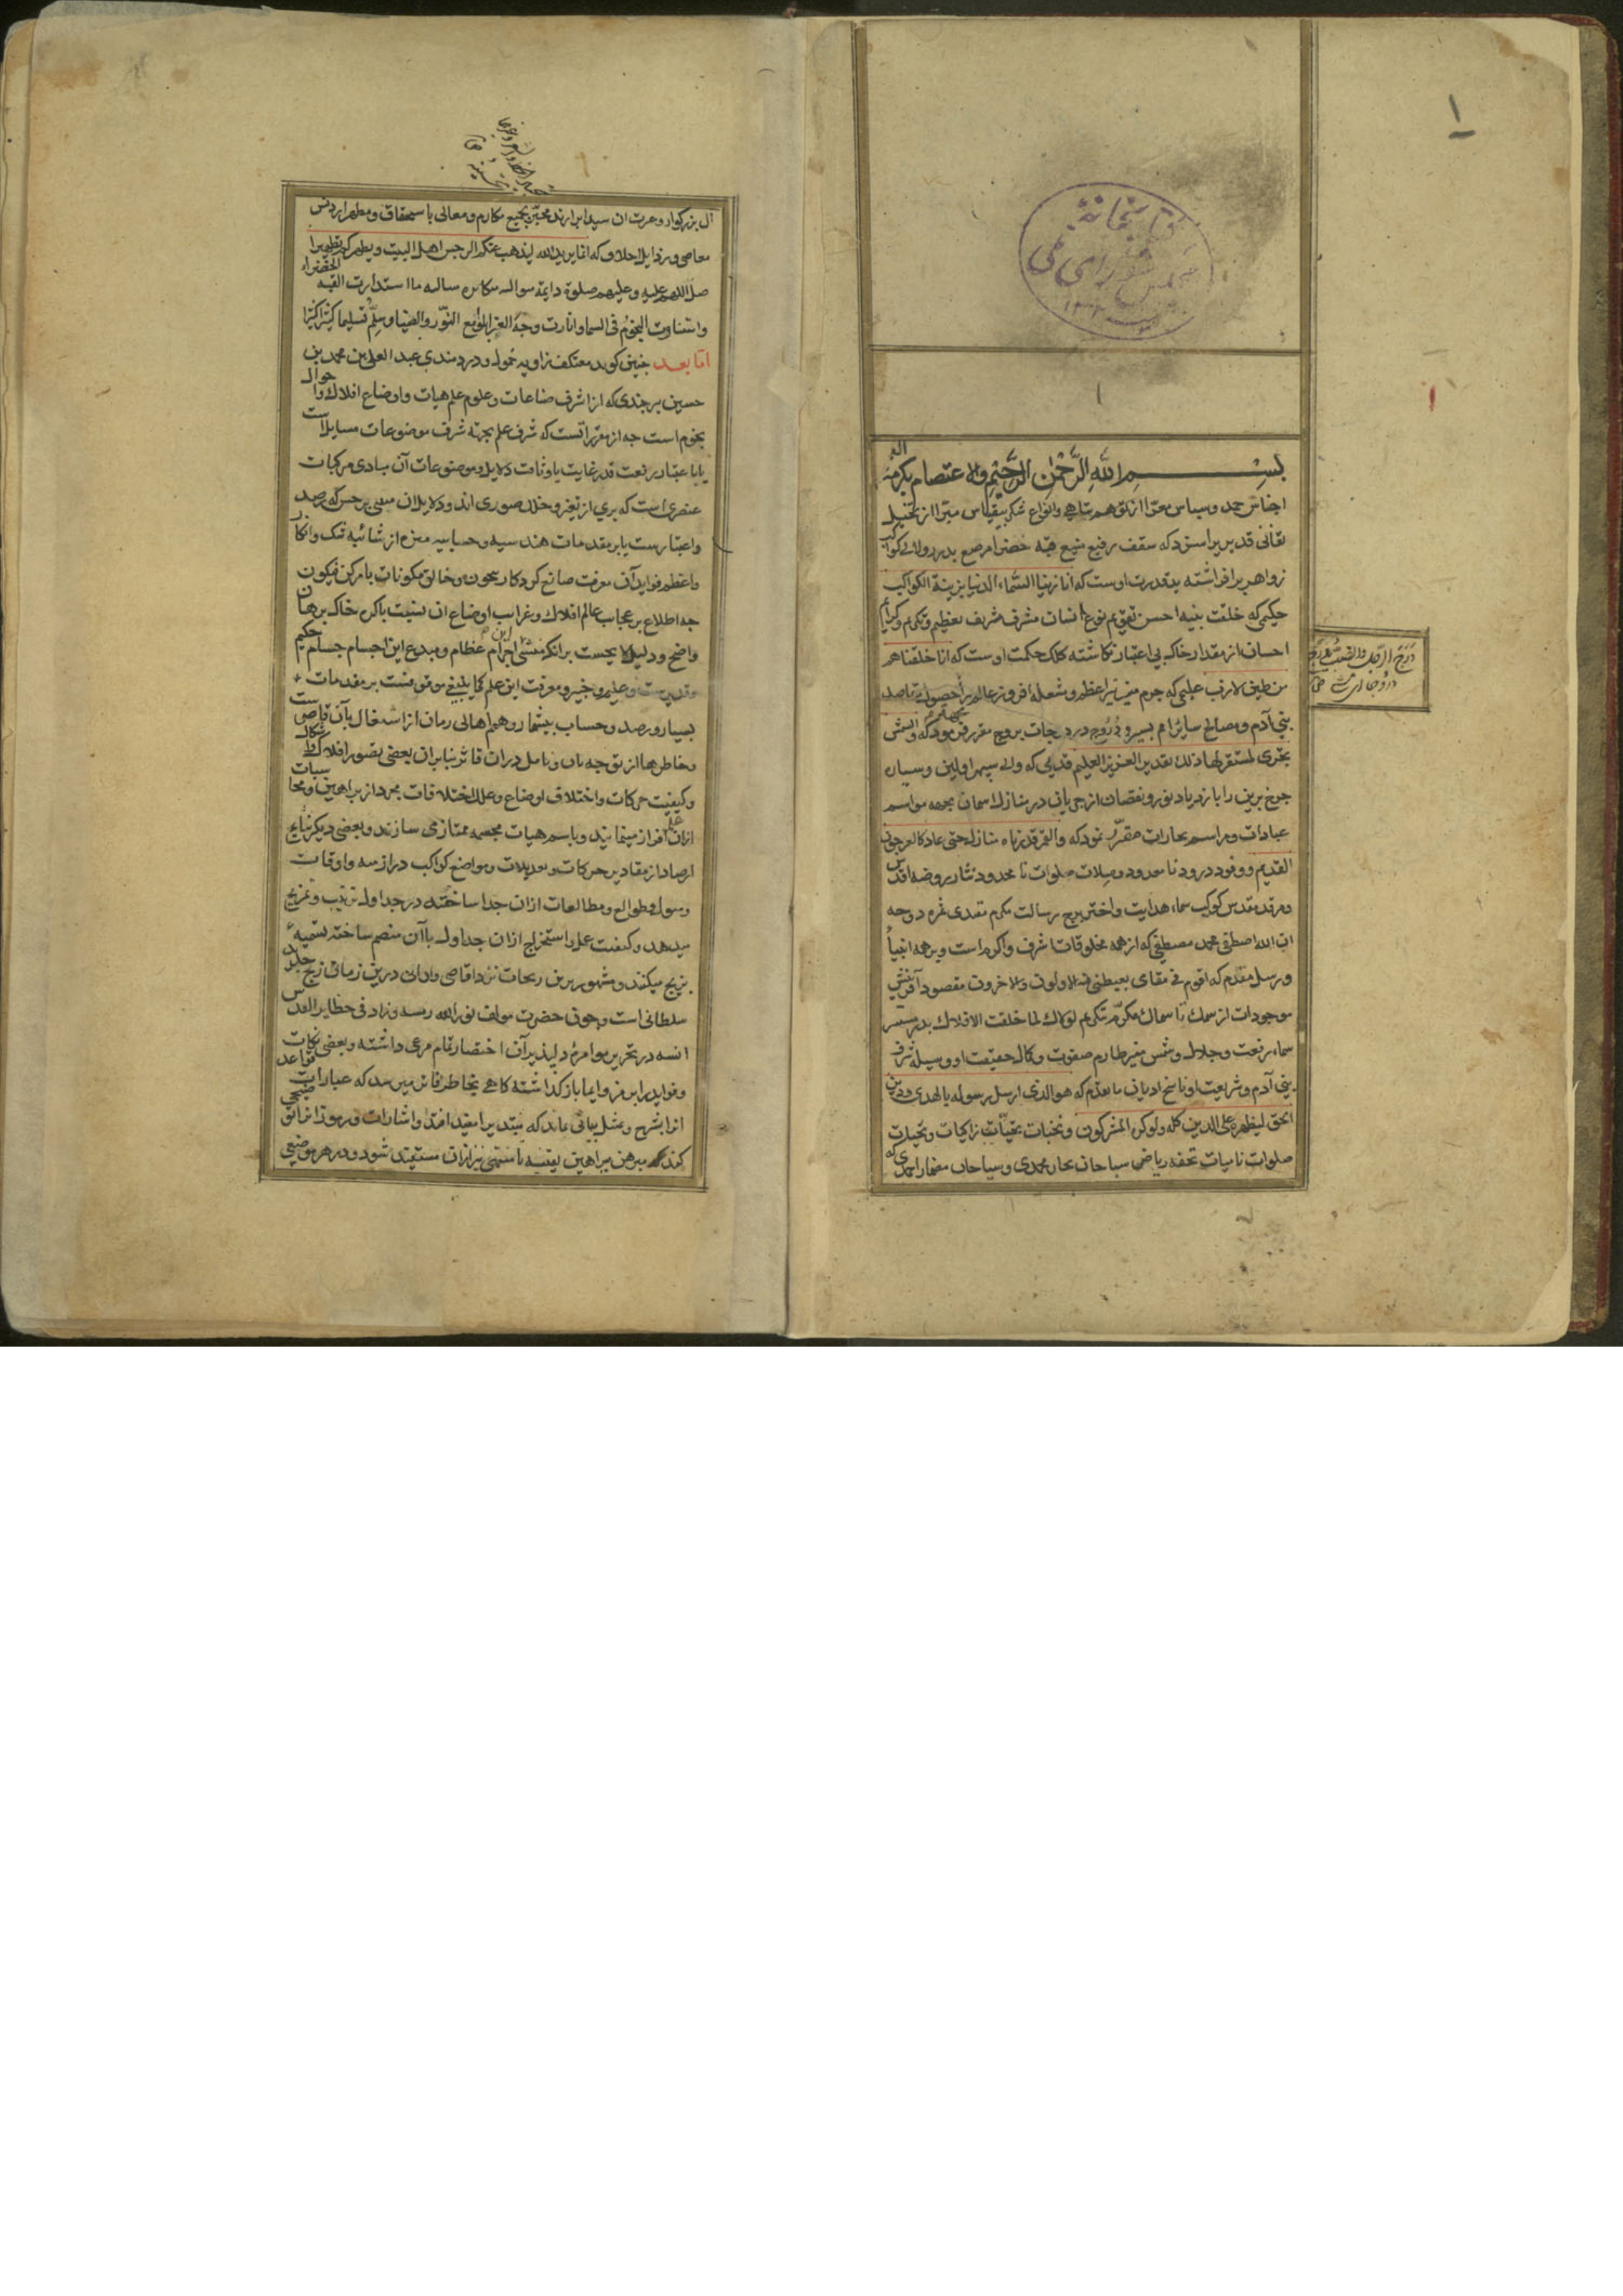 ۱
کتابخانهٔ
مجلس شورای ملی
۱
بسم الله الرحمن الرحیم والاعتصام بکرمه
اجناس حمد و سپاس معرّا از تناهی و انواع شکر بیقیاس مبرّا از تخیل
قدیری را سزد که سقف رفیع منیع قبه خضرا مرصع بدرر والی کواکب
زواهر برافراشته ید قدرت اوست که انا زینا السماء الدنیا بزینة الکواکب
حکیمی که خلقت بنیه احسن تقویم نوع انسان مشرف بشریف تعظیم و تکریم و
احسان از مقدار خاک بی اعتبار نگاشته کلک حکمت اوست که انا خلقناهم
من طین لازب علیمی که جرم منیر نیر اعظم و شعله افروز عالم را حصول مقاصد
بنی آدم و مصالح سایر امم بسیر و دروج در درجات بروج مقرر فرمود که والشمس
تجری لمستقر لها ذلک تقدیر العزیز العلیم قدیمی که والی سپهر اولین و
چرخ برین را بازدیاد نور و نقصان از جریان در منازل اسمان بجهه مواسم
عبادات و مراسم تجارات مقرّر نمود که والقمر قدرناه منازل حتی عاد کالعرجون
القدیم و وفود درود نامعدود و صلات صلوات نامحدود نثار روضه اقدس
و مرقد مقدس کوکب سماء هدایت و اختر برج رسالت مکرم مقتدی ثمره دوحه
ان الله اصطفی محمد مصطفی که از همه مخلوقات اشرف و اکرم است و بر همه انبیا
و رسل مقدم که اقوم فی مقامی یغبطنی فیه الاولون والاخرون مقصود آفرینش
موجودات از سمک تا سماک مکرّم بتکریم لولاک لما خلقت الافلاک بدر
سماء رفعت و جلال و شمس منیر طارم صفوت و کمال حقیقت او وسیله شرف
بنی آدم و شریعت او ناسخ ادیان ما تقدم که هو الذی ارسل رسوله بالهدی و دین
الحق لیظهره علی الدین کله ولو کره المشرکون و نخبات تحیّات زاکیات و
صلوات نامیات تحفه ریاض سباحان بحار محمدی و سیاحان مضمار احمدی که
آل بزرگوار و عترت ان سید ابرارند بجمیع مکارم و معالی با استحقاق و مطهر از دنس
معاصی و رذایل اخلاق که انما یرید الله لیذهب عنکم الرجس اهل البیت و یطهرکم تطهیرا
صل اللهم علیه و علیهم صلوة دایمة ما استدارت القبه الخضراء
واستنارت النجوم فی السماء و انارت وجه الغبرا بلوامع النّور والضیا و سلّم تسلیما کثیرا کثیرا
اما بعد چنین گوید معتکف زاویه خمول و دردمندی عبد العلی بن محمد بن
حسین برجندی که از اشرف صناعات و علوم علم هیات و اوضاع افلاک و احوال
نجوم است چه از مقررات است که شرف علم بجهة شرف موضوعات مسایل است
یا باعتبار رفعت قدر غایت یا وثاقت دلایل و موضوعات آن مبادی مرکبات
عنصری است که بری از تغیر و خلل صوری اند و دلایل ان مبنی بر حس که رصد
و اعتبارست یا بر مقدمات هندسیه و حسابیه منزه از شائبه شک و انکار
و اعظم فواید آن معرفت صانع کردکار بیچون و خالق مکونات بامر کن فیکون
چه اطلاع بر عجایب عالم افلاک و غرایب اوضاع ان بنسبت با کره خاک برهان
واضح و دلیل لایحست بر آنکه منشی این اجرام عظام و مبدع این اجسام جسام حکیم
و قدیرست و علیم و خبیر و معرفت این علم کما ینبغی موقوفست بر مقدمات
بسیار و رصد و حساب بیشمار و همم اهالی زمان از اشتغال بآن قاصرست
و خاطرها از توجه بان و تامل دران فاتر بنابران بعضی تصور افلاک و اشکال
و کیفیت حرکات و اختلاف اوضاع و علل اختلافات مجرد از براهین و محاسبات
ازان علم افراز مینمایند و باسم هیات مجسمه ممتاز می سازند و بعضی دیگر نتایج
ارصاد از مقادیر حرکات و تعدیلات و مواضع کواکب در ازمنه و اوقات
و میول و طوالع و مطالعات ازان جدا ساخته در جداول ترتیب و تمزیج
میدهد و کیفیت عمل و استخراج ازان جداول باآن منضم ساخته تسمیه
بزیج میکنند و مشهورترین زیجات نزد اقاصی و ادانی درین زمان زیج جدید
سلطانی است و چون حضرت مولف نور الله رمسه و زاد فی حظایر القدس
انسه در تحریر مؤامره دلپذیر آن اختصار تمام مرعی داشته و بعضی نکات
و فواید را برمز و ایما باز گذاشته گاهی بخاطر فاتر میرسد که عبارات
انرا بشرح و بیانی که مبتدی را مفید افتد و اشارات و رموز انرا
کند مبرهن ببراهین یقینیه تا منتهی نیز ازان مستفید شود و در هر موضعی